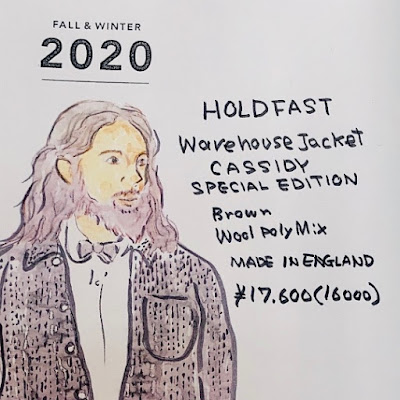 FALL & WINTER
2020
HOLDFAST
Warehouse Jacket
CASSIDY
SPECIAL EDITION
Brown
Wool Poly Mix
MADE IN ENGLAND
¥17.600(16000)